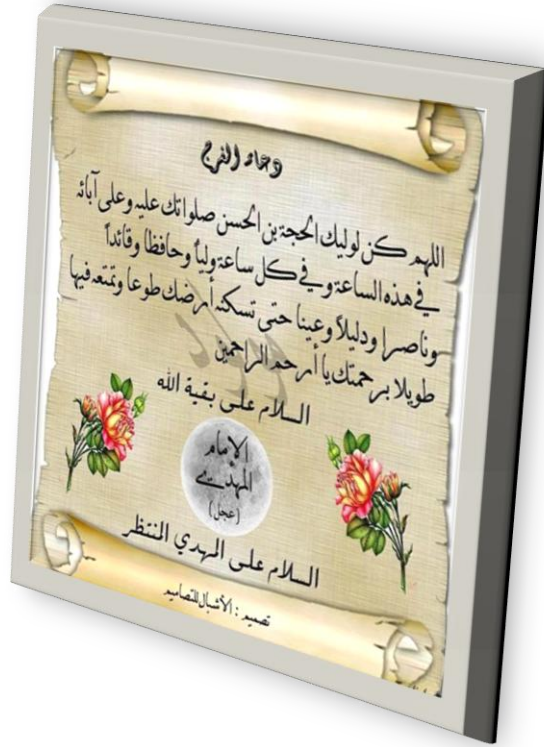 دعاء الفرج
اللهم كن لوليك الحجة بن الحسن صلواتك عليه وعلى آبائه
في هذه الساعة وفي كل ساعة ولياً وحافظا وقائداً
وناصرا ودليلاً وعينا حتى تسكنه أرضك طوعا وتمتعه فيها
طويلا برحمتك يا أرحم الراحمين
السلام على بقية الله
الإمام
المهدي
(عجل)
السلام على المهدي المنتظر
تصميم : الأشبال للتصاميم